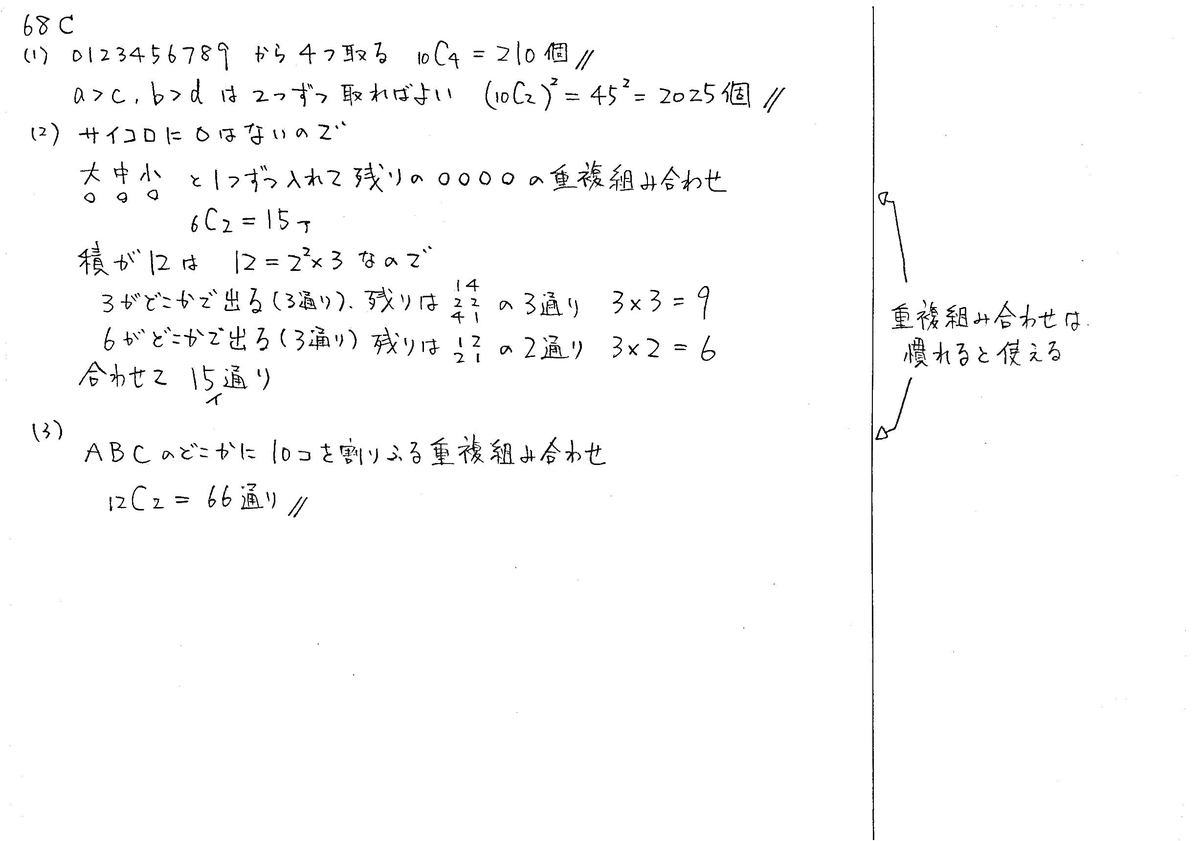 68C
(1) 0123456789 から4つ取る ₁₀C₄ = 210個 //
a>c, b>d は2つずつ取ればよい (₁₀C₂)² = 45² = 2025個 //
(2) サイコロに0はないので
大 中 小 と1つずつ入れて残りの○○○○の重複組み合わせ
○ ○ ○
₆C₂ = 15 ア
積が12は 12 = 2²×3 なので
3がどこかで出る(3通り). 残りは 14 22 41 の3通り 3×3 = 9
6がどこかで出る(3通り) 残りは 12 21 の2通り 3×2 = 6
合わせて 15通り
イ
(3)
ABCのどこかに10コを割りふる重複組み合わせ
₁₂C₂ = 66通り //
重複組み合わせは.
慣れると使える